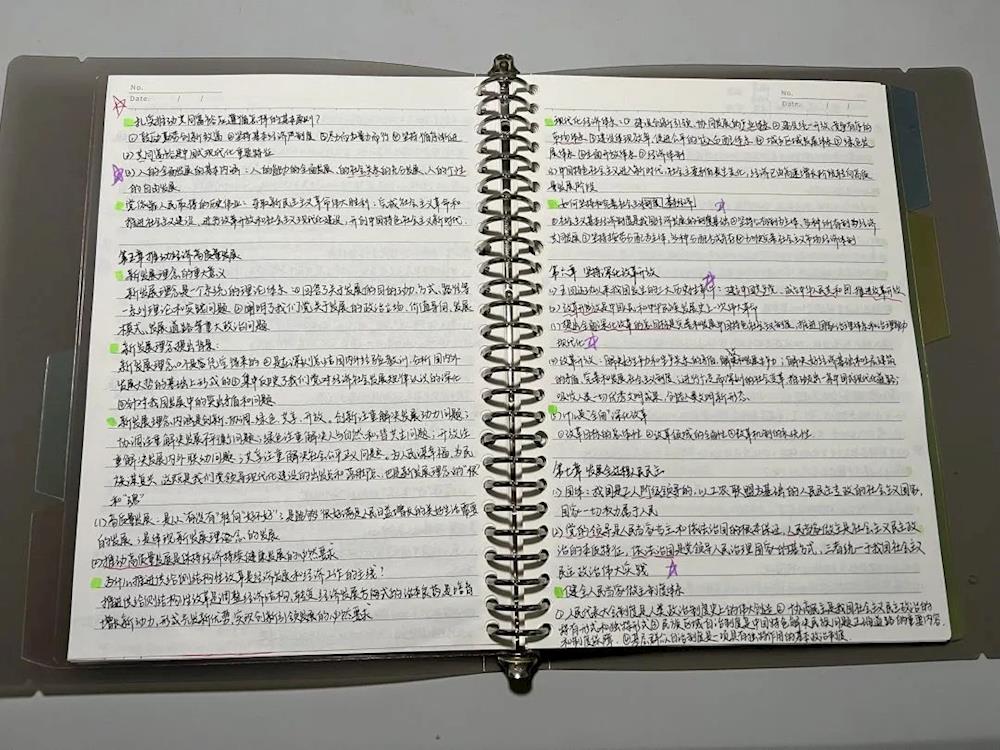 No.
Date. / /
扎实推动共同富裕应遵循怎样的基本原则?
① 鼓励勤劳创新致富 ②坚持基本经济制度 ③尽力而为量力而行 ④坚持循序渐进
(2) 共同富裕是中国式现代化重要特征
(3) 人的全面发展的基本内涵:人的能力的全面发展、人的社会关系的充分发展、人的个性
的自由发展
党领导人民取得的历史伟业:夺取新民主主义革命伟大胜利;完成社会主义革命和
推进社会主义建设,进行改革开放和社会主义现代化建设,开创中国特色社会主义新时代.
第五章 推动经济高质量发展
新发展理念的重大意义
新发展理念是一个系统的理论体系 ①回答了关于发展的目的、动力、方式、路径等
一系列理论和实践问题 ②阐明了我们党关于发展的政治立场、价值导向、发展
模式、发展道路等重大政治问题
新发展理念提出背景:
新发展理念①不是凭空得来的 ②是在深刻总结国内外经验教训,分析国内外
发展大势的基础上形成的③集中反映了我们党对经济社会发展规律认识的深化
④针对我国发展中的突出矛盾和问题
新发展理念内涵是创新、协调、绿色、共享、开放。创新注重解决发展动力问题;
协调注重解决发展不平衡问题;绿色注重解决人与自然和谐共生问题;开放注
重解决发展内外联动问题;共享注重解决社会公平正义问题。为人民谋幸福、为民
族谋复兴,这既是我们党领导现代化建设的出发点和落脚点,也是新发展理念的"根"
和"魂"
(1) 高质量发展:是从"有没有"转向"好不好";是能够很好满足人民日益增长的美好生活需要
的发展;是体现新发展理念的发展
(2) 推动高质量发展是保持经济持续健康发展的必然要求
为什么推进供给侧结构性改革是经济发展和经济工作的主线?
推进供给侧结构性改革是调整经济结构,转变经济发展方式的治本良药是培育
增长新动力,形成先发新优势,实现创新引领发展的必然要求
No.
Date. / /
现代化经济体系:① 建设创新引领、协同发展的产业体系 ②建设统一开放、竞争有序的
市场体系 ③建设体现效率、促进公平的收入分配体系 ④城乡区域发展体系 ⑤绿色发
展体系 ⑥全面开放体系 ⑦经济体制
(2) 中国特色社会主义进入新时代,社会主要矛盾发生变化,经济已由高速增长阶段转向高质
量发展阶段
如何坚持和完善社会主义制度、基本经济
①社会主义基本经济制度是我国经济发展的制度基础②坚持公有制为主体,多种所有制为经济
共同发展 ③坚持按劳分配为主体,多种分配方式并存④加快完善社会主义市场经济体制
第六章 坚持深化改革开放
(1) 五四运动以来我国发生的三大历史性事件:建立中国共产党、成立中华人民共和国、推进改革开放
(2) 改革开放是中国人民和中华民族发展史上一次伟大革命
(3) 提出全面深化改革的总目标是完善和发展中国特色社会主义制度,推进国家治理体系和治理能力
现代化
(4) 改革开放:解放生产力和生产关系的矛盾,解放和发展生产力;解决了经济基础和上层建筑
的矛盾,完善和发展社会主义制度;进行广泛而深刻的社会变革,推动走出一条中国式现代化道路;
吸收人类一切优秀文明成果,创造人类文明新形态.
(5) 什么是"全面"深化改革
①改革目标的总体性 ②改革领域的全面性③改革机制的系统性
第七章 发展全过程人民民主
(1) 国体:我国是工人阶级领导的,以工农联盟为基础的人民民主专政的社会主义国家,
国家一切权力属于人民
(2) 党的领导是人民当家作主和依法治国的根本保证,人民当家做主是社会主义民主政
治的本质特征,依法治国是党领导人民治理国家的基本方式,三者统一于我国社会主义
民主政治伟大实践
健全人民当家做主制度体系
① 人民代表大会制度是人类政治制度史上的伟大创造 ② 协商民主是我国社会主义民主政治的
特有形式和独特形式 ③民族区域自治制度是中国特色解决民族问题正确道路的重要内容
和制度保障.④基层群众自治制度是一项具有独特作用的基本政治制度